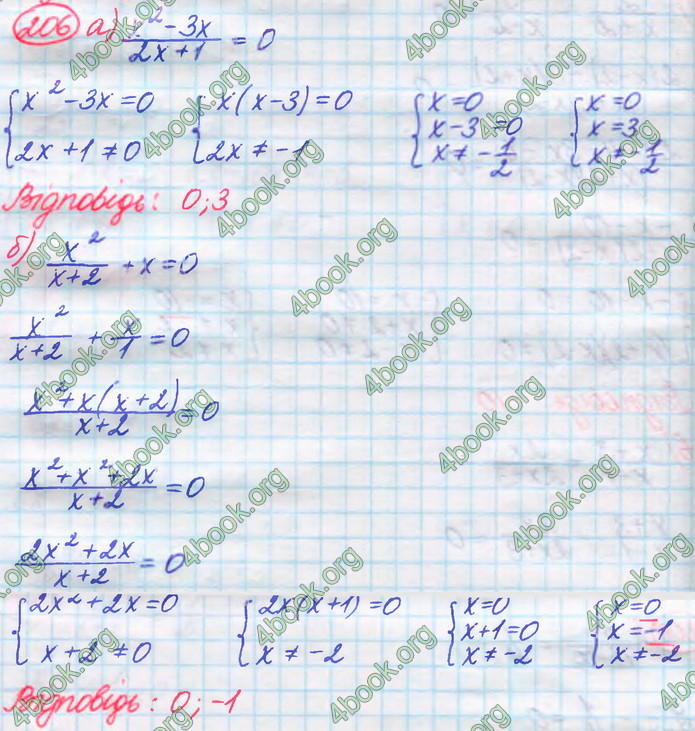 206 а) x² - 3x / 2x + 1 = 0
{ x² - 3x = 0 { x(x - 3) = 0 { x = 0 { x = 0
x - 3 = 0 x = 3
2x + 1 ≠ 0 2x ≠ -1 x ≠ - 1/2 x ≠ - 1/2
Відповідь: 0; 3
б) x² / x + 2 + x = 0
x² / x + 2 + x / 1 = 0
x² + x(x + 2) / x + 2 = 0
x² + x² + 2x / x + 2 = 0
2x² + 2x / x + 2 = 0
{ 2x² + 2x = 0 { 2x(x + 1) = 0 { x = 0 { x = 0
x + 1 = 0 x = -1
x + 2 ≠ 0 x ≠ -2 x ≠ -2 x ≠ -2
Відповідь: 0; -1
4book.org